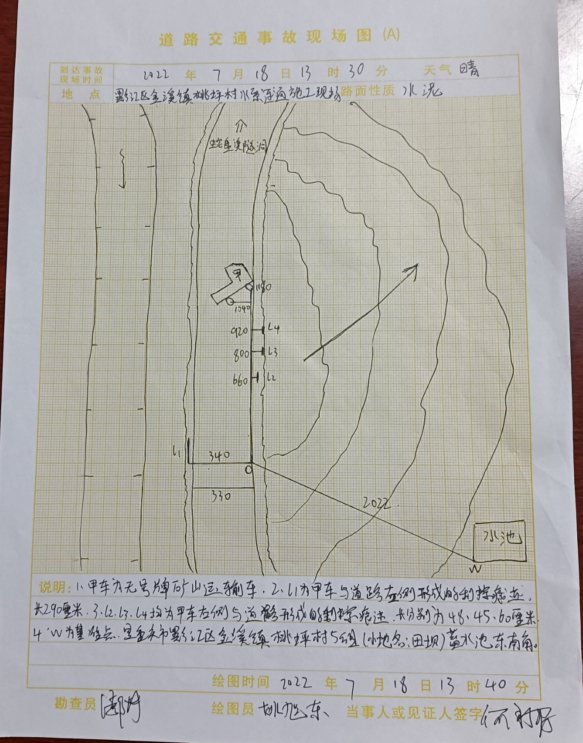 道路交通事故现场图(A)
到达事故现场时间 2022 年 7 月 18 日 13 时 30 分 天气 晴
地点 黔江区金溪镇桃坪村水泵 施工现场 路面性质 水泥
隧洞
甲
1180
1090
920 L4
800 L3
660 L2
L1 340
O
330
2022
水池
W
说明:1.甲车为无号牌矿山运输车。2.L1为甲车与道路左侧形成的刮擦痕迹,
长290厘米。3.L2.L3.L4均为甲车右侧与道路形成的刮擦痕迹,长分别为48.45.60厘米
4.W为基准点,是重庆市黔江区金溪镇桃坪村5组(小地名:田坝)蓄水池东南角。
绘图时间 2022 年 7 月 18 日 13 时 40 分
勘查员 绘图员 姚旭东 当事人或见证人签字